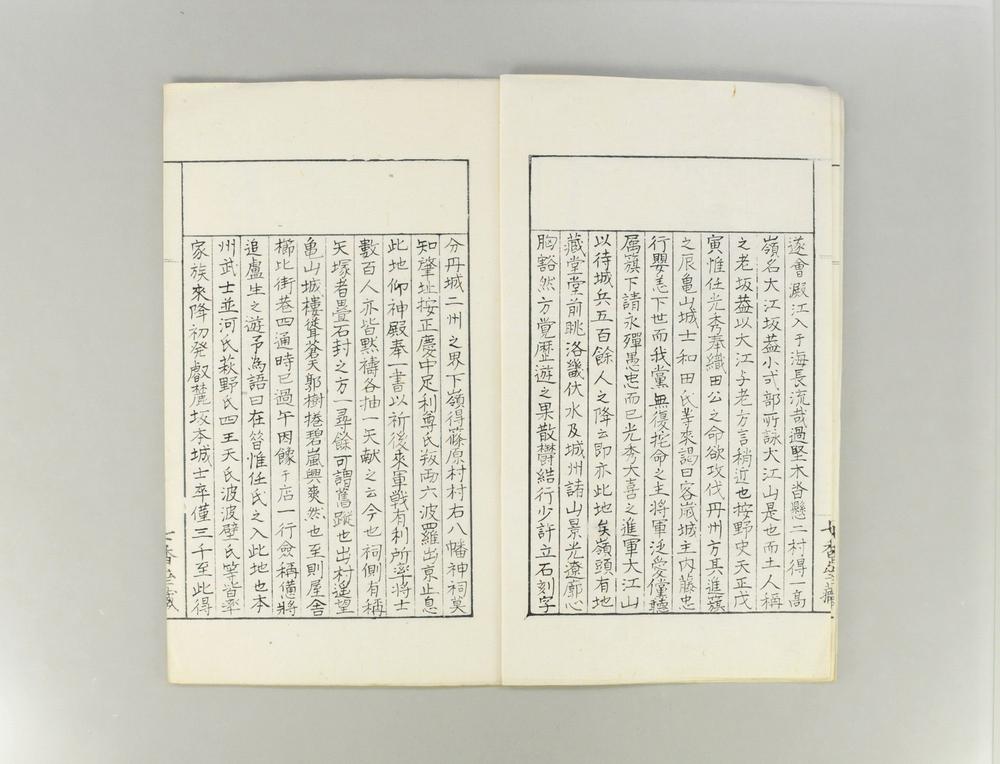 遂會澱江入于海長流哉過堅木沓懸二村得一高
嶺名大江坂蓋小弍部所詠大江山是也而土人稱
之老坂蓋以大江與老方言稍近也按野史天正戊
寅惟任光秀奉織田公之命欲攻伐丹州方其進蓐
之辰亀山城士和田氏等來謁曰客歲城主内藤忠
行嬰恙下世而我黨無復托命之主将軍泛愛儻聽
属籏下請永殫愚忠而已光秀大喜之進軍大江山
以待城兵五百餘人之降云即亦此地矣嶺頭有地
藏堂堂前眺洛畿伏水及城州諸山景光遼廓心
胸豁然方覚歴遊之果散欝結行少許立石刻字
分丹城二州之界下嶺得篠原村村右八幡神祠莫
知肇址按正慶中足利尊氏叛両六波羅出京止息
此地仰神殿奉一書以祈後來軍戦有利所率将士
數百人亦皆黙禱各抽一矢献之云今也祠側有稱
矢塚者畳石封之方一尋餘可謂舊蹤也出村遙望
亀山城樓聳蒼天郭樹捲碧嵐興爽然也至則屋舎
櫛比街巷四通時已過午因餯于店一行僉稱憊将
追盧生之遊予為語曰在昔惟任氏之入此地也本
州武士並河氏萩野氏四王天氏波波壁氏等皆率
家族來降初発叡麓坂本城士卒僅三千至此得